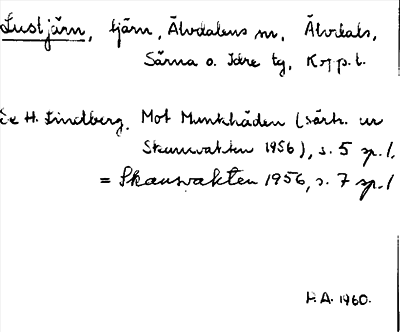 Lustjärn, tjärn, Älvdalens sn, Älvdals,
Särna o. Idre tg, Kopp. l.
Se H. Lindberg. Mot Munkhåden (särtr. ur
Skansvakten 1956), s. 5 sp. 1,
= Skansvakten 1956, s. 7 sp. 1
H.A. 1960.